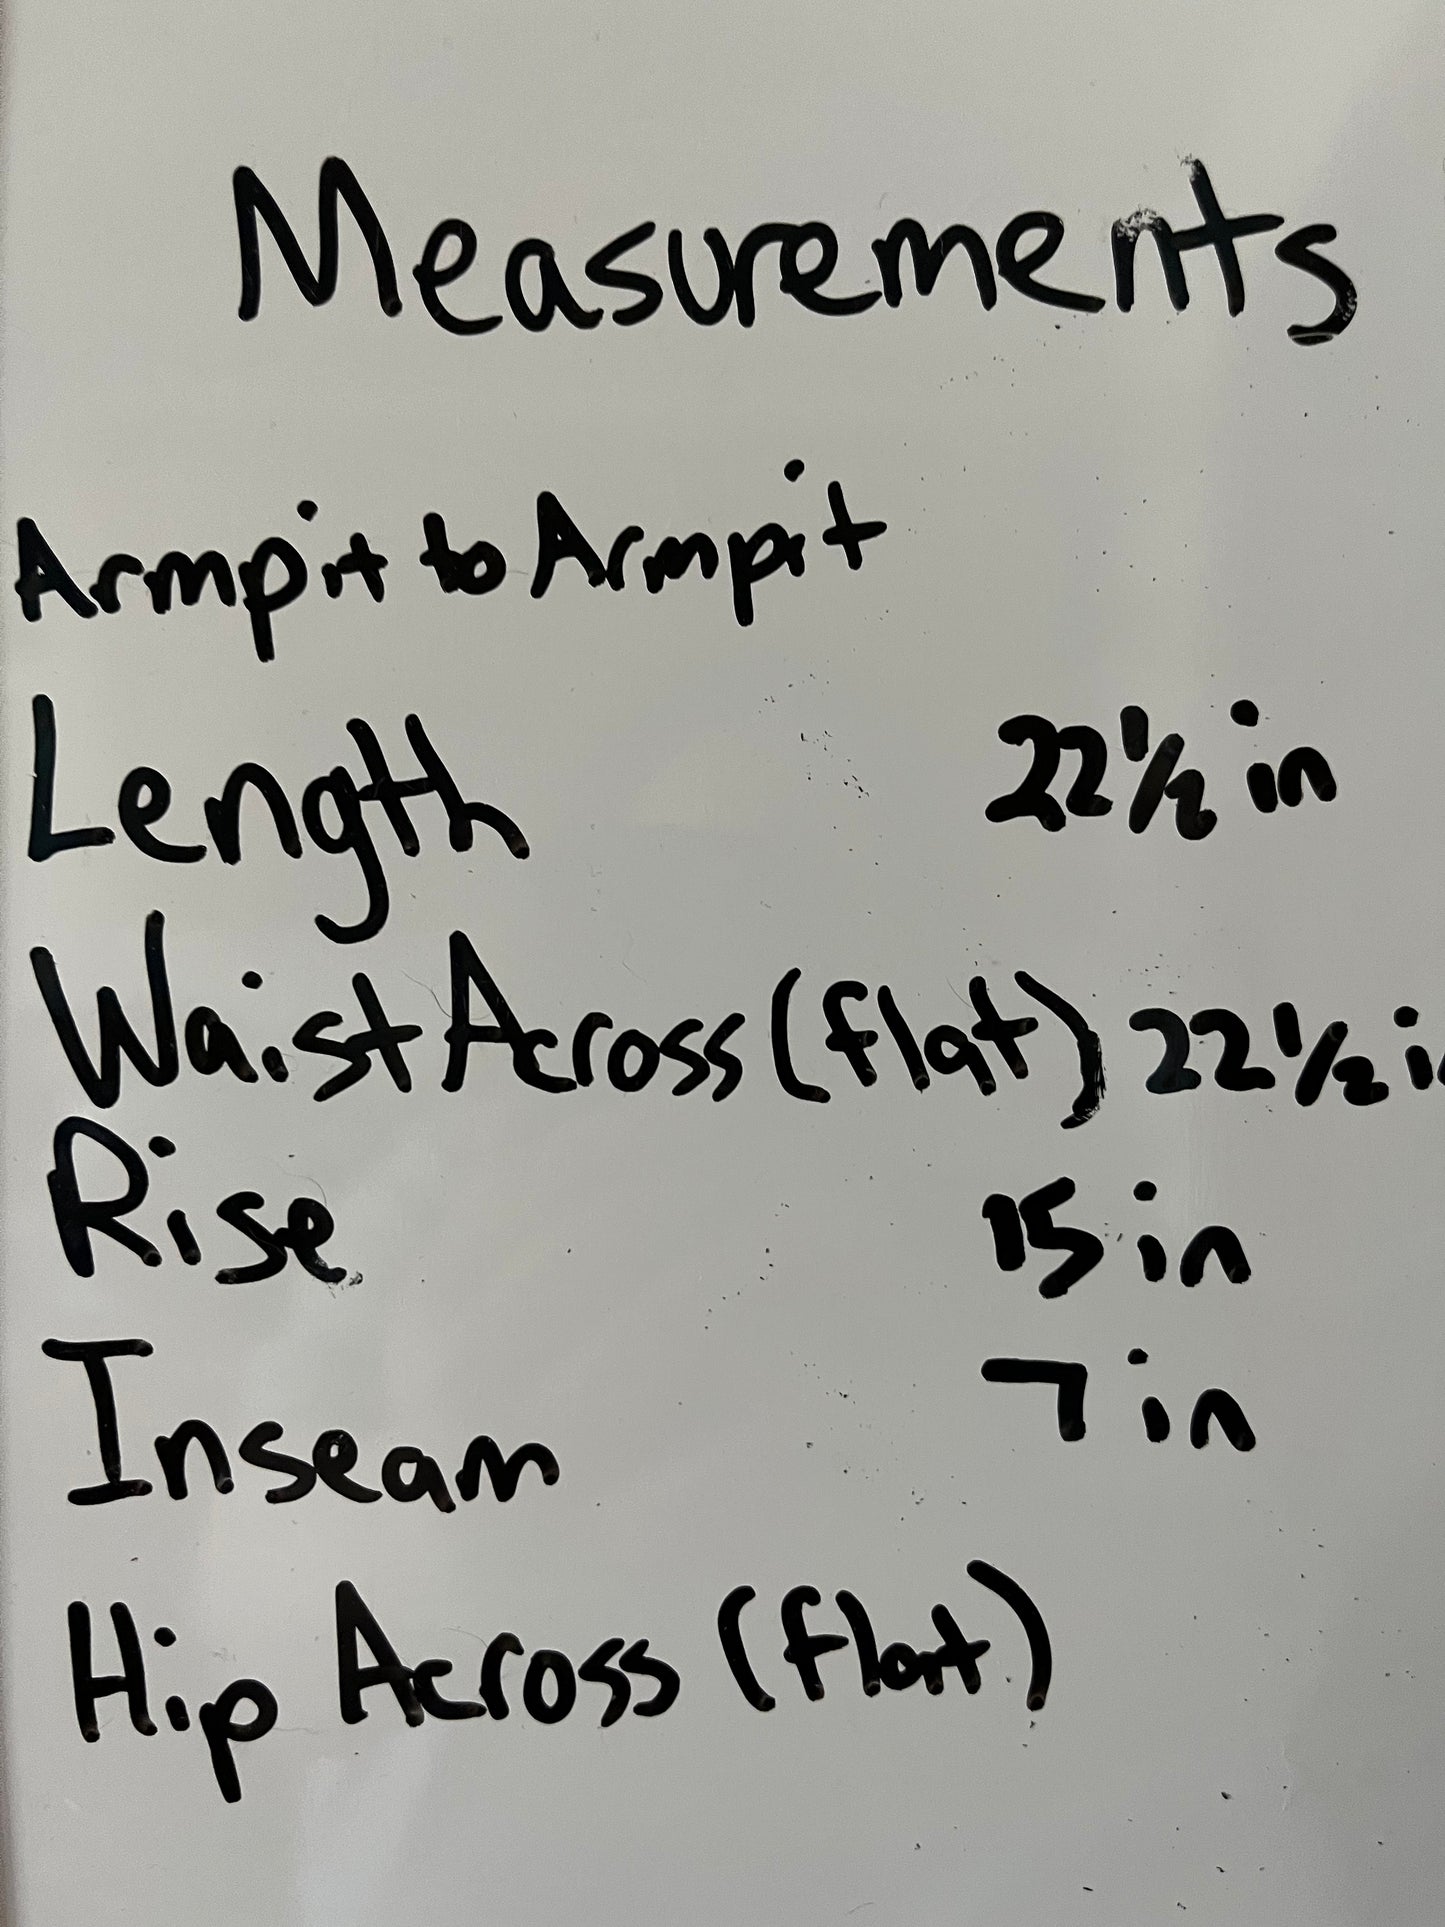 Measurements
Armpit to Armpit
Length 22 1/2 in
Waist Across (flat) 22 1/2 i
Rise 15 in
Inseam 7 in
Hip Across (flat)